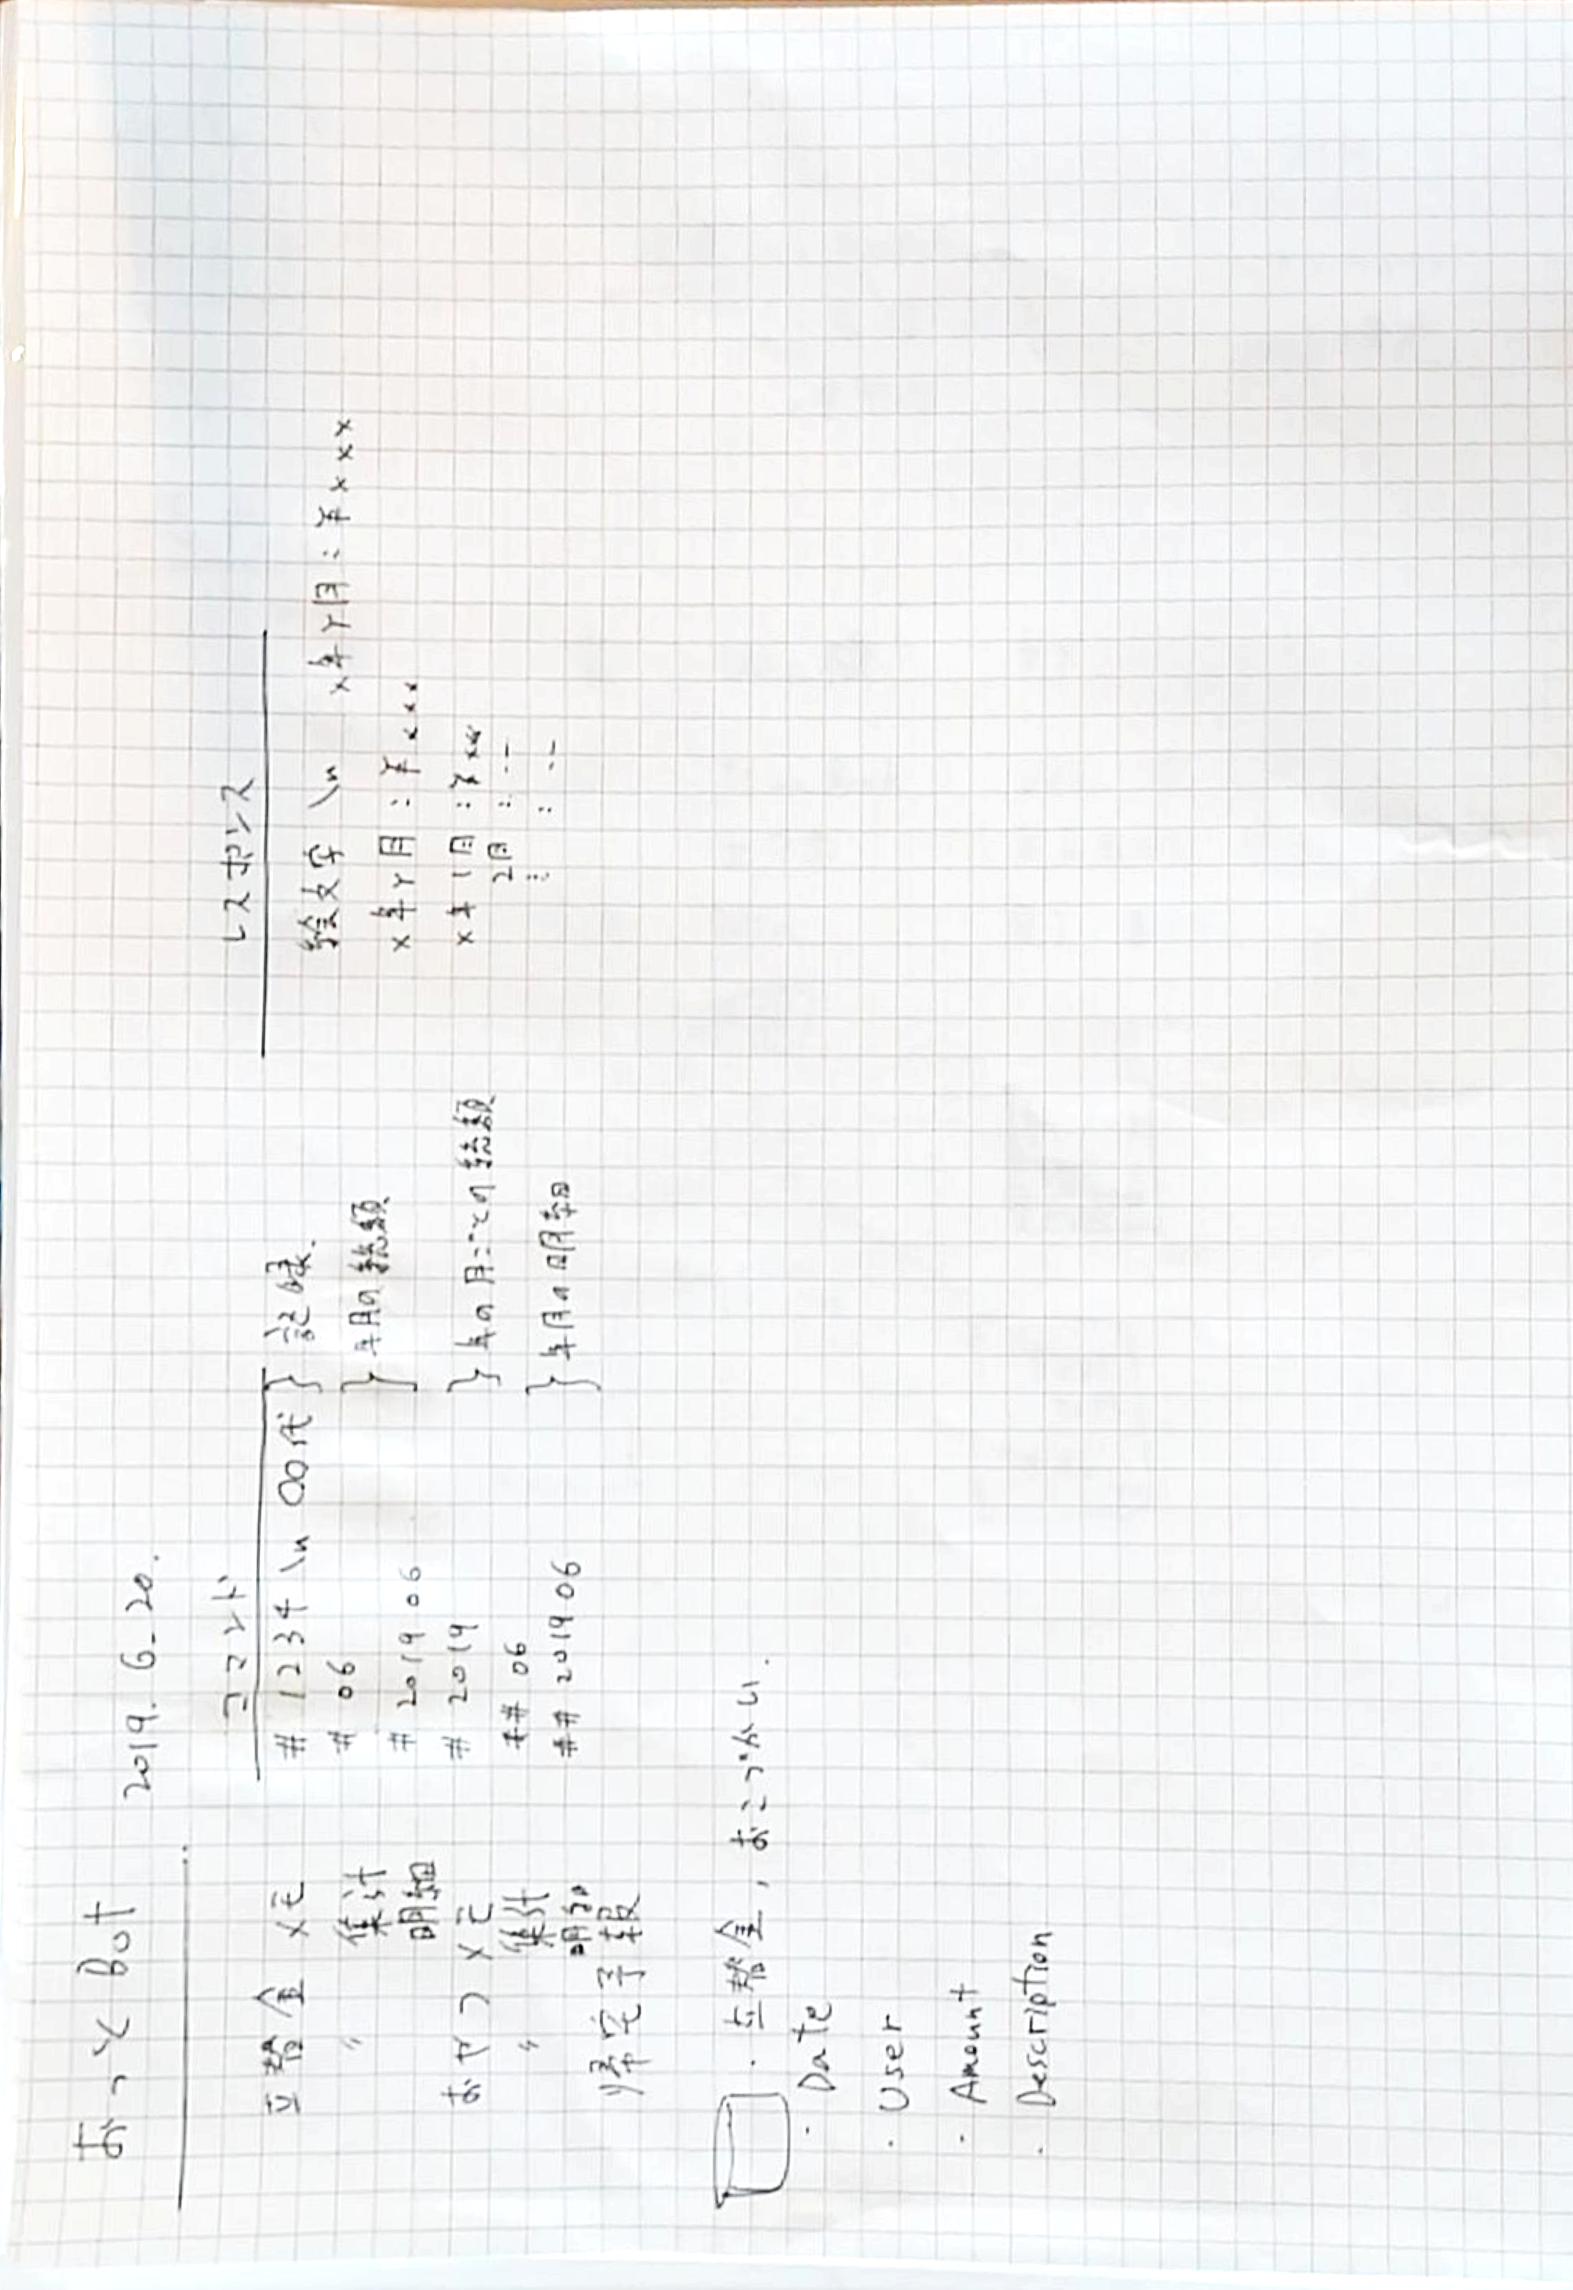 おっと Bot
2019. 6. 20.
コマンド
レスポンス
立替金 メモ
〃 集計
明細
おやつ メモ
〃 集計
明細
帰宅予報
# 1234 \n 〇〇代 } 記録.
# 06
# 2019 06
} 年月の総額
# 2019 } 年の月ごとの総額
## 06
## 2019 06
} 年月の明細
絵文字 \n x年Y月 : ¥xxx
x年Y月 : ¥xxx
x年1月 : ¥xxx
2月 : --
⋮ : --
・立替金, おこづかい.
・Date
・User
・Amount
・Description